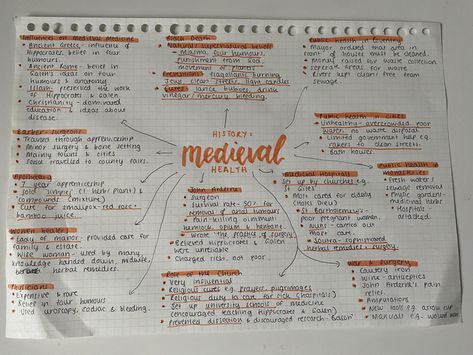 Influences on Medieval Medicine
• Ancient Greece - influence of
Hippocrates, belief in four
humours.
• Ancient Rome - belief in
Galen's ideas on four
humours & anatomy
• Islam - preserved the work
of Hippocrates & Galen
• Christianity - dominated
education & ideas about
disease.
Barber surgeons
• Trained through apprenticeship
• Minor surgery & bone setting
• Mainly towns & cities
• Some travelled to county fairs.
Apothecary
• 7 year apprenticeship
• Sold 'simples' (1 herb/plant) &
'compounds' (mixture)
• Cure for smallpox - red rose +
bamboo juice.
Women healers
• Lady of manor - provided care for
family & estate
• Wise woman - used by many,
knowledge handed down, midwife,
herbal remedies.
Physicians
• Expensive & rare
• Belief in four humours
• Used uroscopy, zodiac & bleeding.
Black Death
• Natural/supernatural belief -
miasma, four humours,
punishment from God,
movement of planets
• Prevention: flagellants, burning
Jews, clean streets, light candles
• Cures: lance buboes, drink
vinegar/mercury, bleeding.
HISTORY:
medieval
HEALTH
John Arderne
• Surgeon
• Survival rate - 50% for
removal of anal tumours
• Pain-killing ointment:
hemlock, opium & henbane
• Wrote 'The practice of surgery'
• Believed Hippocrates & Galen
were unreliable
• Charged rich, not poor
Role of the Church
• Very influential
• Religious cures e.g. prayers, pilgrimages
• Religious duty to care for sick (hospitals)
• Set up university schools of medicine
(encouraged teaching Hippocrates & Galen)
• Prevented dissection & discouraged research - Bacon
Public health in Coventry
• Mayor ordered that area in
front of houses must be cleaned.
• Money raised for waste collection
• Separate areas for waste
• Rivers kept clean/free from
sewage.
Public health in cities
• Unhealthy - overcrowded, poor
water, no waste disposal
• Limited government help e.g.
rakers to clean streets.
• Bath houses.
Medieval Hospitals
• Set up by churches e.g.
St Giles'
• Most cared for elderly
• St. Bartholomew's -
poor pregnant women.
• Nuns - carried out
most care.
herbal remedies & surgery.
Public health
monasteries
• Fresh water/
sewage removal
• Physic gardens -
traditional herbs
• Hospitals -
attached.
War & surgery
• Cautery iron
• Wine - antiseptics
• John Arderne's pain
relief.
• Amputations
• New tools e.g. arrow cup